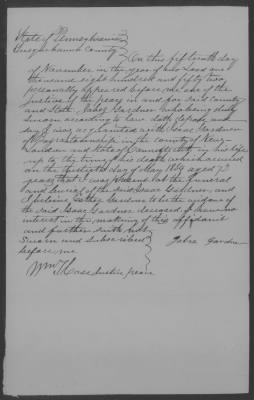 State of Pennsylvania
Susquehanna County
On this fiftenth day
of November in the year of our Lord one
thousand eight hundred and fifty two
personally appeared before me one of the
Justices of the peace in and for said county
and State Gardner who being duly
sworn according to law doth depose and
say I was acquainted with Isaac Gardner
of township in the county of
and State of his life
up to the time of his death which occured
on the first day of May aged 73
years that I was present at the funeral
and burial of the said Isaac Gardner and
I believe Esther Gardner to be the widow of
the said Isaac Gardner deceased I have no
interest in the making of this affidavit
and further saith not
Sworn and subscribed
before me
Gardner
Wm Justice peace